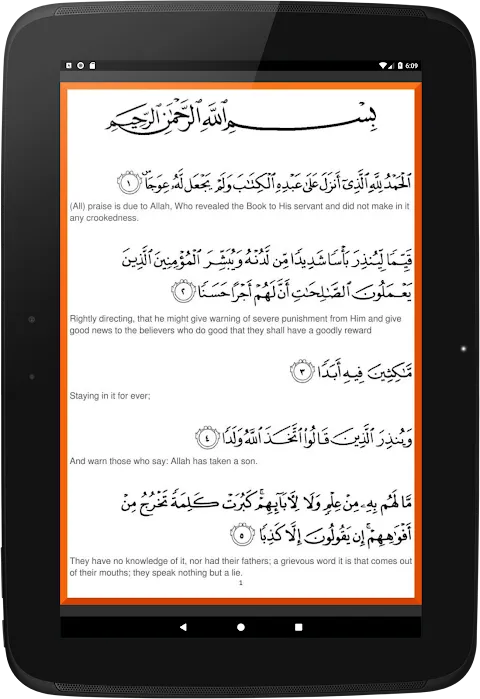 6:09
بِسْمِ اللَّهِ الرَّحْمَٰنِ الرَّحِيمِ
الْحَمْدُ لِلَّهِ الَّذِي أَنْزَلَ عَلَىٰ عَبْدِهِ الْكِتَابَ وَلَمْ يَجْعَلْ لَهُ عِوَجًا ۜ ١
(All) praise is due to Allah, Who revealed the Book to His servant and did not make in it
any crookedness.
قَيِّمًا لِّيُنذِرَ بَأْسًا شَدِيدًا مِّن لَّدُنْهُ وَيُبَشِّرَ الْمُؤْمِنِينَ الَّذِينَ
يَعْمَلُونَ الصَّالِحَاتِ أَنَّ لَهُمْ أَجْرًا حَسَنًا ٢
Rightly directing, that he might give warning of severe punishment from Him and give
good news to the believers who do good that they shall have a goodly reward
مَّاكِثِينَ فِيهِ أَبَدًا ٣
Staying in it for ever;
وَيُنذِرَ الَّذِينَ قَالُوا اتَّخَذَ اللَّهُ وَلَدًا ٤
And warn those who say: Allah has taken a son.
مَّا لَهُم بِهِ مِنْ عِلْمٍ وَلَا لِآبَائِهِمْ ۚ كَبُرَتْ كَلِمَةً تَخْرُجُ مِنْ
أَفْوَاهِهِمْ ۚ إِن يَقُولُونَ إِلَّا كَذِبًا ٥
They have no knowledge of it, nor had their fathers; a grievous word it is that comes out
of their mouths; they speak nothing but a lie.
1